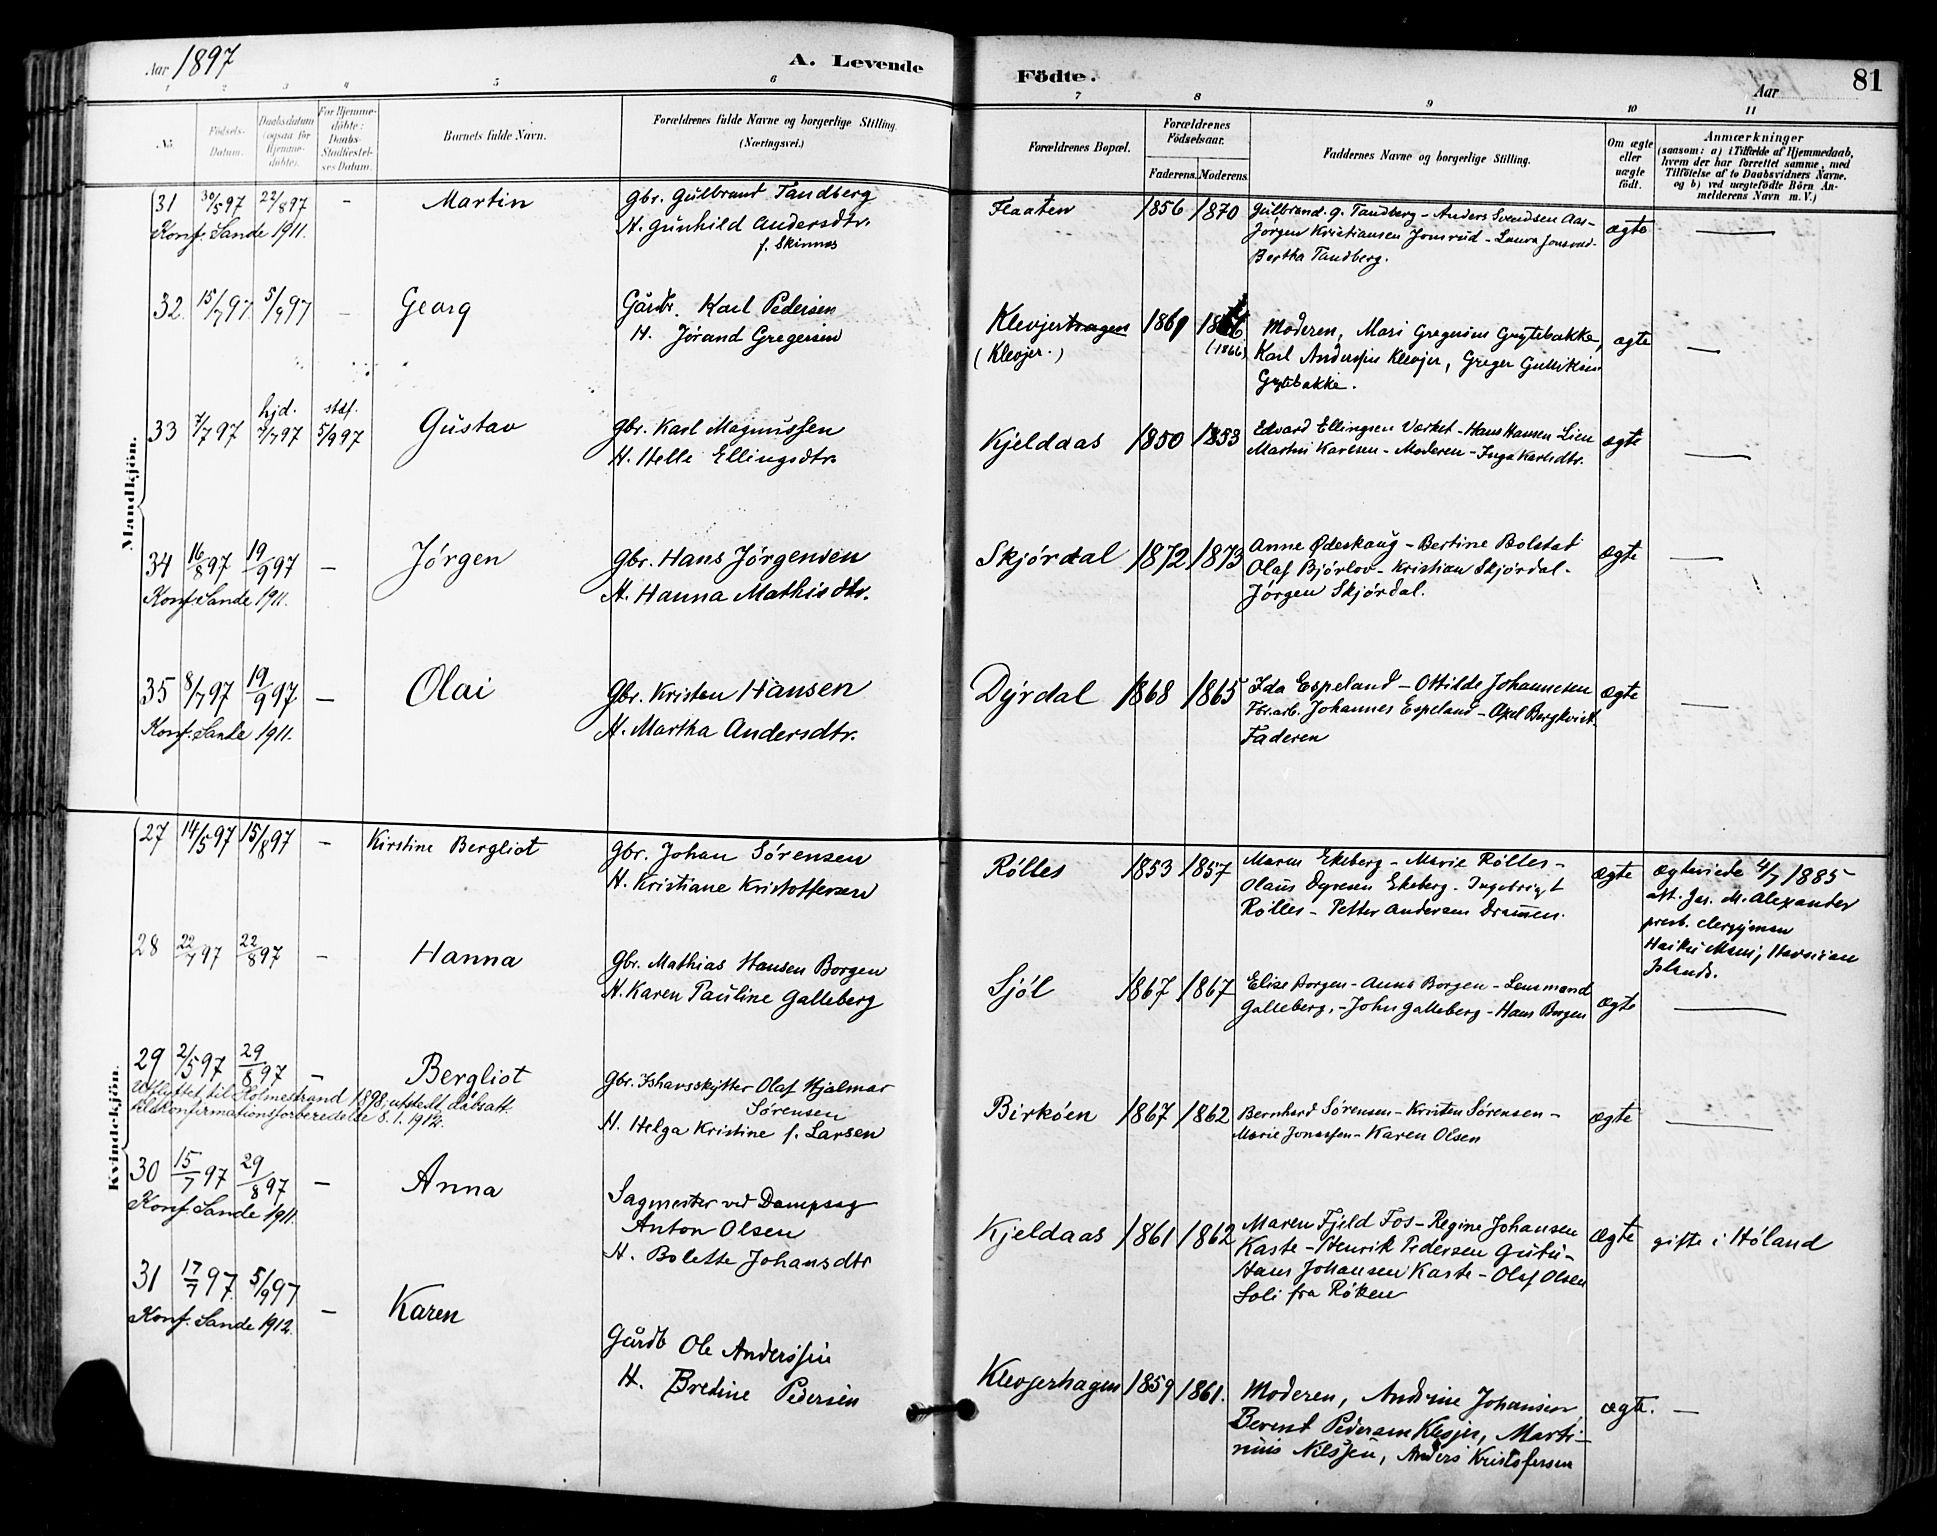 Aar 1897
A. Levende
Födte.
Aar
81
1 2 3 4 5 6 7 8 9 10 11
No.
Fødsels-
Datum.
Daabsdatum
(ogsaa for
Hjemme-
døbte).
For Hjemme-
døbte:
Daabs-
Stadfæstel-
ses Datum.
Barnets fulde Navn.
Forældrenes fulde Navne og borgerlige Stilling.
(Næringsvei.)
Forældrenes Bopæl.
Forældrenes
Födselsaar.
Faderens. Moderens.
Faddernes Navne og borgerlige Stilling.
Om ægte
eller
uægte
født.
Anmærkninger
(saasom: a) i Tilfælde af Hjemmedaab,
hvem der har forrettet samme, med
Tilföielse af to Daabsvidners Navne.
og b) ved uægtefödte Börn An-
melderens Navn m. V.)
Mandkjön.
31 30/5 97 22/8 97 – Martin
Gbr. Gulbrand Tandberg
H. Gunhild Andersdtr.
f. Skinnes
Konf. Sande 1911.
Flaaten 1856 1870
Gulbrand G. Tandberg – Anders Svendsen Aas –
Jørgen Kristiansen Jonsrud – Laura Jonsrud –
Bertha Tandberg.
ægte —
32 15/7 97 5/9 97 – Georg
Gårdbr. Karl Pedersen
H. Jørand Gregersen
Klevjerhagen
(Klevjer.)
1869
(1866)
Moderen, Mari Gregersen Grytebakke,
Karl Andersen Klevjer, Greger Gulliksen
Grytebakke.
ægte —
33 7/7 97
hjd.
7/7 97
stdf.
5/9 97
Gustav
Gbr. Karl Magnussen
H. Helle Ellingsdtr.
Kjeldaas 1850 1853
Edvard Ellingsen Værket – Hans Hansen Lien
Martin Karlsen – Moderen – Inga Karlsdtr.
ægte —
34 16/8 97 19/9 97 – Jørgen
Gbr. Hans Jørgensen
H. Hanna Mathisdtr.
Konf. Sande 1911.
Skjørdal 1872 1873
Anne Ødeskaug – Bertine Bolstad
Olaf Bjørlov – Kristian Skjørdal –
Jørgen Skjørdal.
ægte —
35 8/7 97 19/9 97 – Olai
Gbr. Kristen Hansen
H. Martha Andersdtr.
Konf. Sande 1911.
Dyrdal 1868 1865
Ida Espeland – Othilde Johannesen
Fbr.arb. Johannes Espeland – Axel Bergkvist
Faderen
ægte —
Kvindekjön.
27 14/5 97 15/8 97 – Kirstine Bergliot
Gbr. Johan Sørensen
H. Kristiane Kristoffersen
Rølles 1853 1857
Maren Ekeberg – Marie Rølles –
Olaus Dyresen Ekeberg – Ingebrigt
Rølles – Petter Andersen Drammen.
ægte
ægteviede 4/7 1885
att. Jas. M. Alexander
presb. clergyman
Haiku Maui, Hawaiian
Islands.
28 22/7 97 22/8 97 – Hanna
Gbr. Mathias Hansen Borgen
H. Karen Pauline Galleberg
Sjøl 1867 1867
Elise Borgen – Anna Borgen – Lensmand
Galleberg, – John Galleberg – Hans Borgen
ægte —
29 2/5 97 29/8 97 – Bergliot
Utflyttet til Holmestrand 1898, utstedt dåbsatt.
til konfirmationsforberedelse 8.1.1912.
Gbr. Ishavsskytter Olaf Hjalmar
Sørensen
H. Helga Kristine f. Larsen
Birkøen 1867 1862
Bernhard Sørensen – Kristen Sørensen –
Marie Jonassen – Karen Olsen
ægte —
30 15/7 97 29/8 97 – Anna
Konf. Sande 1911.
Sagmester ved Dampsag
Anton Olsen
H. Bolette Johansdtr
Kjeldaas 1861 1862
Maren Fjeld Fos – Regine Johansen
Kaste – Henrik Pedersen Gutu –
Hans Johansen Kaste – Olaf Olsen
Soli fra Røken
ægte
gifte i Høland
31 17/7 97. 5/9 97 – Karen
Konf. Sande 1912.
Gårdb Ole Anderssen
H. Bredine Pedersen
Klevjerhagen 1859 1861.
Moderen, Andrine Johansen,
Berent Pedersen Klevjer, Marti-
nius Nilssen, Anders Kristofersen
ægte. —